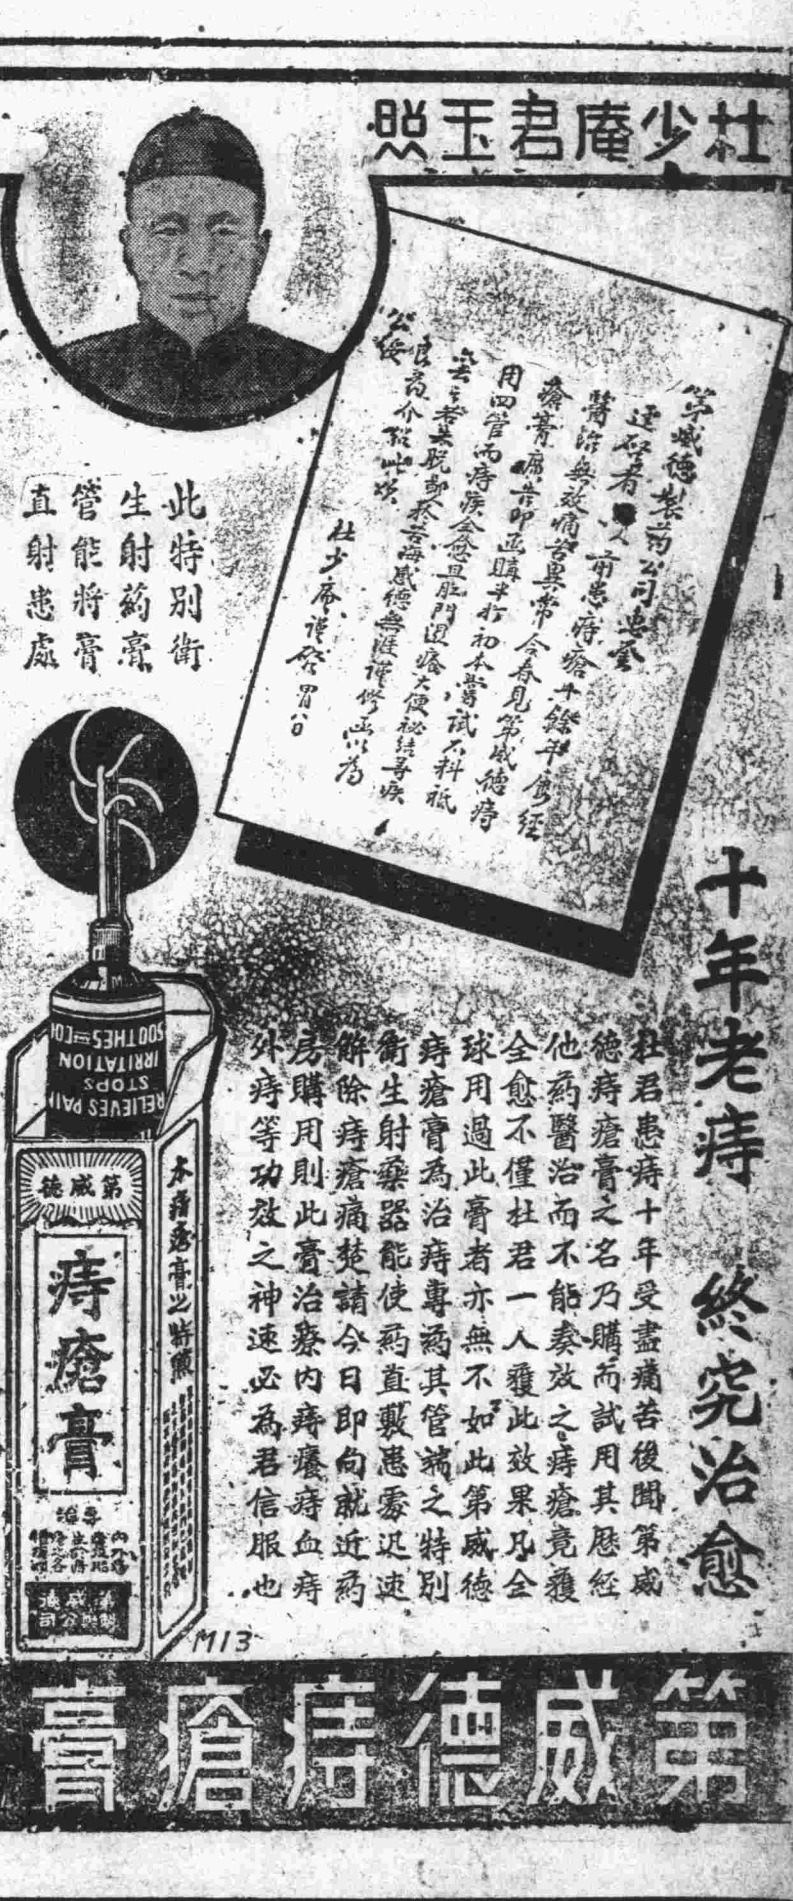 杜少庵君玉照
第威德製药公司惠鉴
逕啓者 人前患痔瘡十餘年屢經
醫治無效痛苦異常今春見第威德痔
瘡膏廣告即函購半打初本嘗試不料祇
用四管而痔疾全愈且肛門退癢大便秘結等疾
杜少庵謹啓
此特別衛
生射葯膏
管能將膏
直射患處
十年老痔 終究治愈
杜君患痔十年受盡痛苦後聞第威
德痔瘡膏之名乃購而試用其歷經
他葯醫治而不能奏效之痔瘡竟獲
全愈不僅杜君一人獲此效果凡全
球用過此膏者亦無不如此第威德
痔瘡膏為治痔專葯其管端之特別
衛生射藥器能使葯直敷患處迅速
解除痔瘡痛楚請今日即向就近葯
房購用則此膏治療內痔癢痔血痔
外痔等功效之神速必為君信服也
RELIEVES PAIN
STOPS
IRRITATION
SOOTHES-CO
第威德
痔瘡膏
專治
本痔瘡膏之特點
M13
第威德痔瘡膏